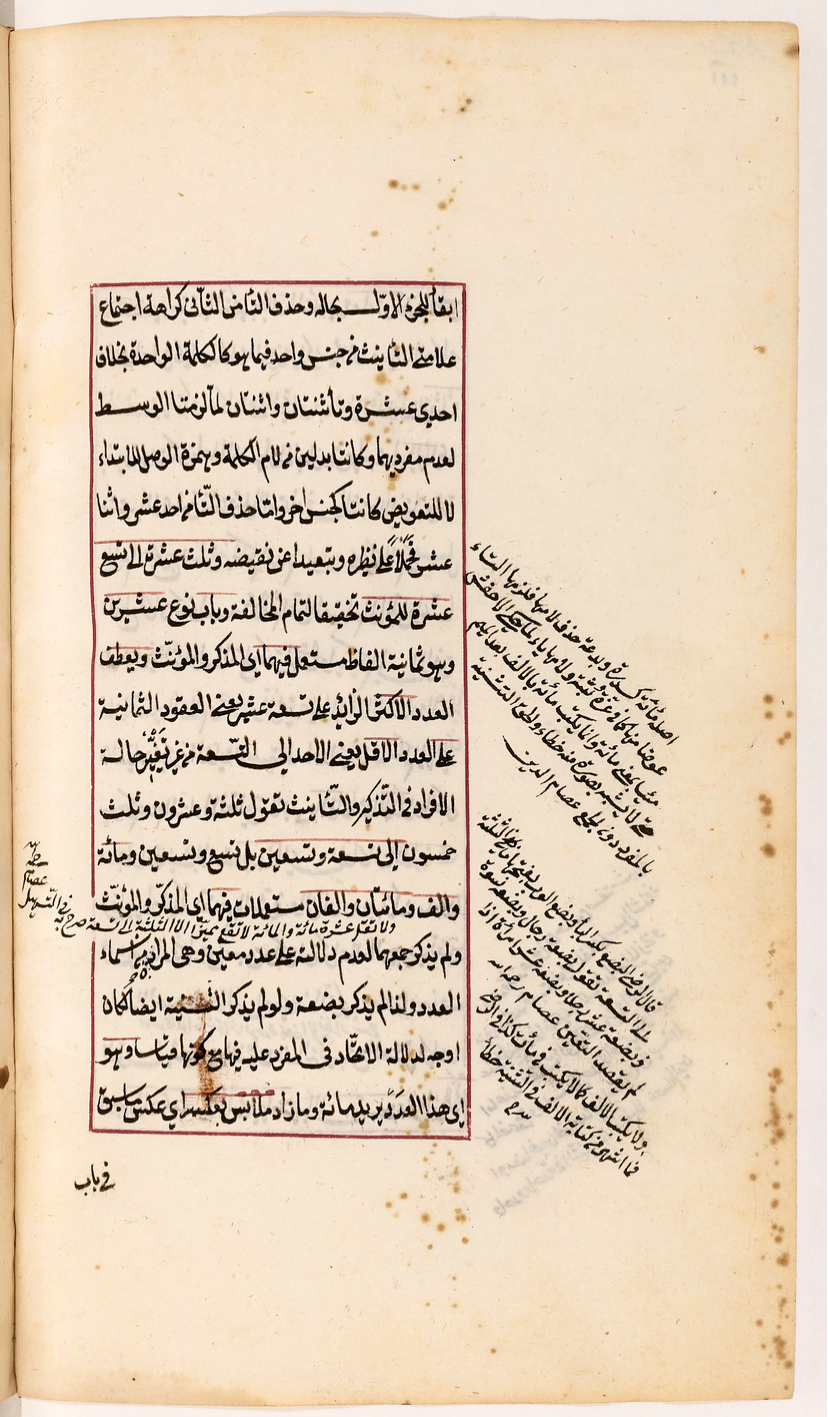 ابقاء للجزء الاوّل بحاله وحذف التا من الثانى كراهة اجتماع
علامتى التأنيث من جنس واحد فيما هو كالكلمة الواحدة بخلاف
احدى عشرة وتاء ثنتان واثنتان لما لزمتا الوسط
لعدم مفرديهما وكانتا بدلين من لام الكلمة وهمزة الوصل للابتداء
لا للتعويض كانتا كجنس اخر وامّا حذف التّا من احد عشر واثنا
عشر فحملاً على نظيره وتبعيدا عن نقيضه وثلث عشرة الى تسع
عشرة للمؤنث تحقيقا لتمام المخالفة وباب نوع عشرين
وهو ثمانية الفاظ مستعمل فيهما اى المذكر والمؤنّث ويعطف
العدد الاكثر الزائد على تسعة عشر يعنى العقود الثمانية
على العدد الاقل يعنى الاحد الى التّسعة من غير تغيّر حالة
الافراد فى التّذكير والتّأنيث تقول ثلثة وعشرون وثلث
خمسون الى تسعة وتسعين بل تسع وتسعين ومائة
والف ومائتان والفان مستعملات فيهما اى المذكّر والمؤنّث
ولا تقل عشرة مائة والمائة لا تقع مميّزا الا الثلثة الى تسعة صرح به
فى التّسهيل
عصام
ولم يذكر جمعهما لعدم دلالته على عدد معين وهى المراد من اسماء
العدد ولذا لم يذكر بضعة ولو لم يذكر التثنية ايضا لكان
اوجه لدلالة الاتحاد فى المفرد عليه فيها مع كونها قياسا وهو
اى هذا العدد يريد مائة وما زاد ملابس بعكسه اى عكس ما سبق
فى باب
اصله مائة حذف لامها فلزمها التاء
عوضا منها
مائة وانما يكتب مائة بالالف
بالمفرد دون الجمع عصام الدين
قال الرضى البضع بكسر الباء
الى التسعة تقول بضعة رجال وبضع نسوة
وبضعة عشر رجلا وبضع عشرة امرأة اذا
لم تقصد التعيين عصام رحمه الله
ولا يكتب بالالف
فما اشتهر من كتابة الالف فى التثنية خطأ